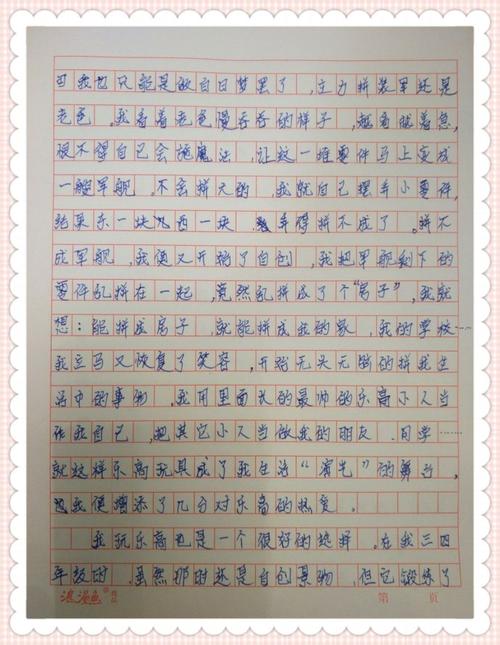 可我也只能是做白日梦罢了，主力拼装军还是
老爸。我看着老爸慢吞吞的样子，越看越着急，
恨不得自己会施魔法，让这一堆零件马上变成
一艘军舰。不会拼大的，我就自己摆弄小零件，
结果东一块西一块，弄得拼不成了。拼不
成军舰，我便又开始了自创，我把军舰剩下的
零件乱拼在一起，竟然乱拼成了个“房子”，我就
想：能拼成房子，就能拼成我的家，我的学校……
我立马又恢复了笑容，开始无头无脑的拼我生
活中的事物，我用里面长的最帅的乐高小人当
作我自己，把其它小人当做我的朋友、同学……
就这样乐高玩具成了我生活“演绎”的舞台，
我便增添了几分对乐高的热爱。
我玩乐高也是一个很好的选择。在我三四
年级时，虽然那时还是自创景物，但它锻炼了
浪漫鱼
第 页